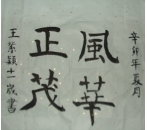 辛卯年夏月
風華
正茂
王紫穎十一歲書